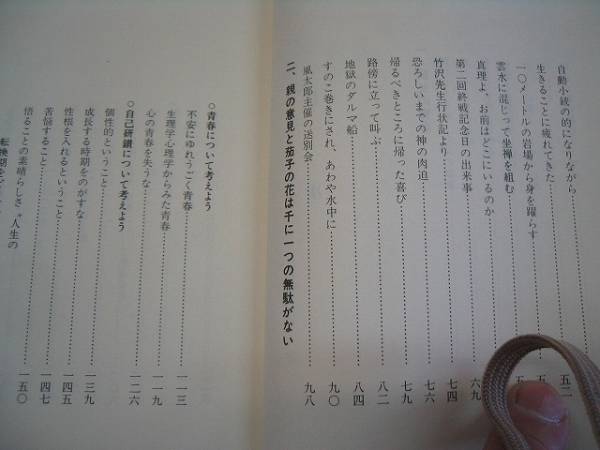 自動小銃の的になりながら 五二
生きることに疲れてきた 五
一〇メートルの岩場から身を躍らす 五
雲水に混じって坐禅を組む
真理よ、お前はどこにいるのか 六九
第二回終戦記念日の出来事 七四
竹沢先生行状記より 七六
恐ろしいまでの神の肉迫 七九
帰るべきところに帰った喜び 八二
路傍に立って叫ぶ 八四
地獄のダルマ船 九〇
すのこ巻きにされ、あわや水中に 九八
風太郎主催の送別会
二、親の意見と茄子の花は千に一つの無駄がない
○青春について考えよう
不安にゆれうごく青春 一一三
生理学心理学からみた青春 一一九
心の青春を失うな 一二六
○自己研鑽について考えよう
個性的ということ 一三九
成長する時期をのがすな 一四五
性根を入れるということ 一四七
苦悩すること 一五〇
悟ることの素晴らしさ〝人生の
転換期をど